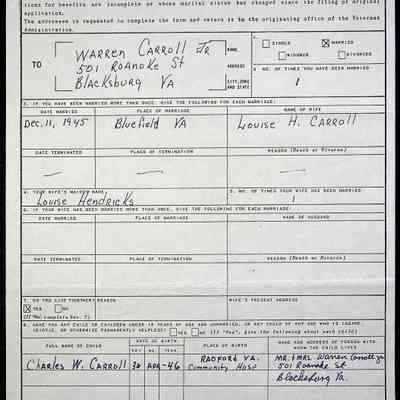 tions for benefits are incomplete or whose marital status has changed since the filing of original
application.
The addressee is requested to complete the form and return to the originating office of the Veterans
Administration.
TO
WARREN CARROLL Jr
501 Roanoke St
Blacksburg VA
NAME
ADDRESS
CITY, ZONE
AND STATE
1.
SINGLE
MARRIED
WIDOWED
DIVORCED
2. NO. OF TIMES YOU HAVE BEEN MARRIED
1
3. IF YOU HAVE BEEN MARRIED MORE THAN ONCE, GIVE THE FOLLOWING FOR EACH MARRIAGE:
DATE MARRIED PLACE OF MARRIAGE NAME OF WIFE
Dec. 11, 1945 Bluefield VA Louise H. CARROLL
DATE TERMINATED PLACE OF TERMINATION REASON (Death or Divorce)
— — —
4. YOUR WIFE'S MAIDEN NAME
Louise Hendricks
5. NO. OF TIMES YOUR WIFE HAS BEEN MARRIED
1
6. IF YOUR WIFE HAS BEEN MARRIED MORE THAN ONCE, GIVE THE FOLLOWING FOR EACH MARRIAGE:
DATE MARRIED PLACE OF MARRIAGE NAME OF HUSBAND
DATE TERMINATED PLACE OF TERMINATION REASON (Death or Divorce)
7. DO YOU LIVE TOGETHER? REASON WIFE'S PRESENT ADDRESS
YES NO
8. HAVE YOU ANY CHILD OR CHILDREN UNDER 18 YEARS OF AGE AND UNMARRIED, OR ANY CHILD OF ANY AGE WHO IS INSANE,
IDIOTIC, OR OTHERWISE PERMANENTLY HELPLESS? YES NO (If "Yes", give the following about each child)
FULL NAME OF CHILD DATE OF BIRTH PLACE OF BIRTH NAME AND ADDRESS OF PERSON WITH
WHOM THE CHILD LIVES
YEAR
Charles W. CARROLL 30 APR-46 RADFORD VA.
Community Hosp
Mr. & Mrs Warren Carroll Jr
501 Roanoke St
Blacksburg Va.